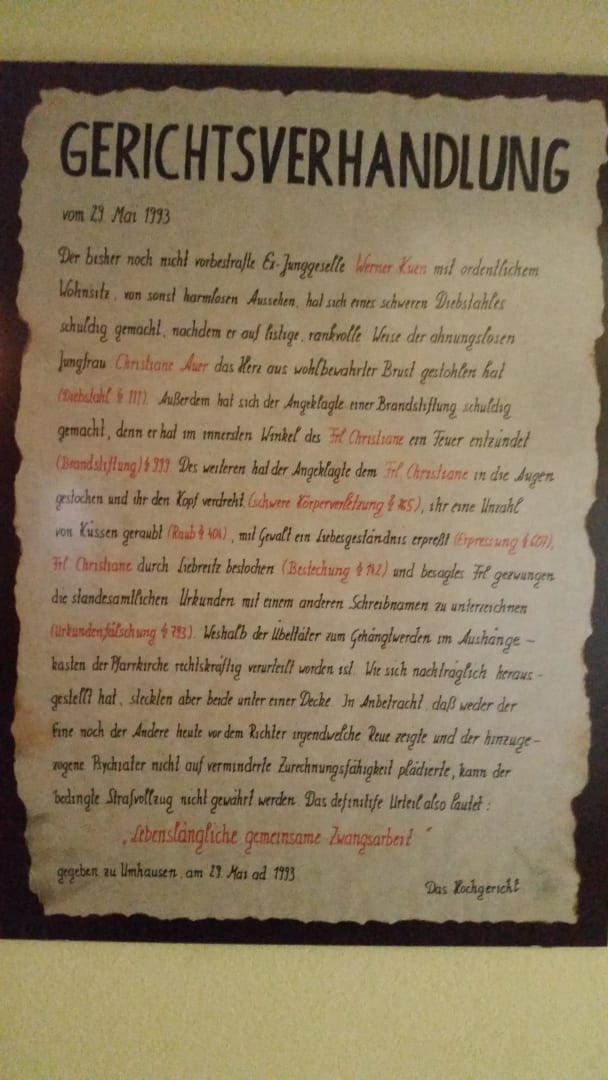 GERICHTSVERHANDLUNG
vom 29. Mai 1993
Der bisher noch nicht vorbestrafte Ex-Junggeselle Werner Kuen mit ordentlichem
Wohnsitz, von sonst harmlosen Aussehen, hat sich eines schweren Diebstahles
schuldig gemacht, nachdem er auf listige, rankvolle Weise der ahnungslosen
Jungfrau Christiane Auer das Herz aus wohlbewahrter Brust gestohlen hat
(Diebstahl § 111). Außerdem hat sich der Angeklagte einer Brandstiftung schuldig
gemacht, denn er hat im innersten Winkel des Frl. Christiane ein Feuer entzündet
(Brandstiftung) § 999. Des weiteren hat der Angeklagte dem Frl Christiane in die Augen
gestochen und ihr den Kopf verdreht (schwere Körperverletzung § 765), ihr eine Unzahl
von Küssen geraubt (Raub § 404), mit Gewalt ein Liebesgeständnis erpreßt (Erpressung § 007),
Frl. Christiane durch Liebreitz bestochen (Bestechung § 142) und besagtes Frl. gezwungen
die standesamtlichen Urkunden mit einem anderen Schreibnamen zu unterzeichnen
(Urkundenfälschung § 793). Weshalb der Übeltäter zum Gehängtwerden im Aushänge-
kasten der Pfarrkirche rechtskräftig verurteilt worden ist. Wie sich nachträglich heraus-
gestellt hat, steckten aber beide unter einer Decke. In Anbetracht, daß weder der
Eine noch der Andere heute vor dem Richter irgendwelche Reue zeigte und der hinzuge-
zogene Psychiater nicht auf verminderte Zurechnungsfähigkeit plädierte, kann der
bedingte Strafvollzug nicht gewährt werden. Das definitife Urteil also lautet:
„Lebenslängliche gemeinsame Zwangsarbeit"
gegeben zu Umhausen, am 29. Mai ad 1993
Das Hochgericht